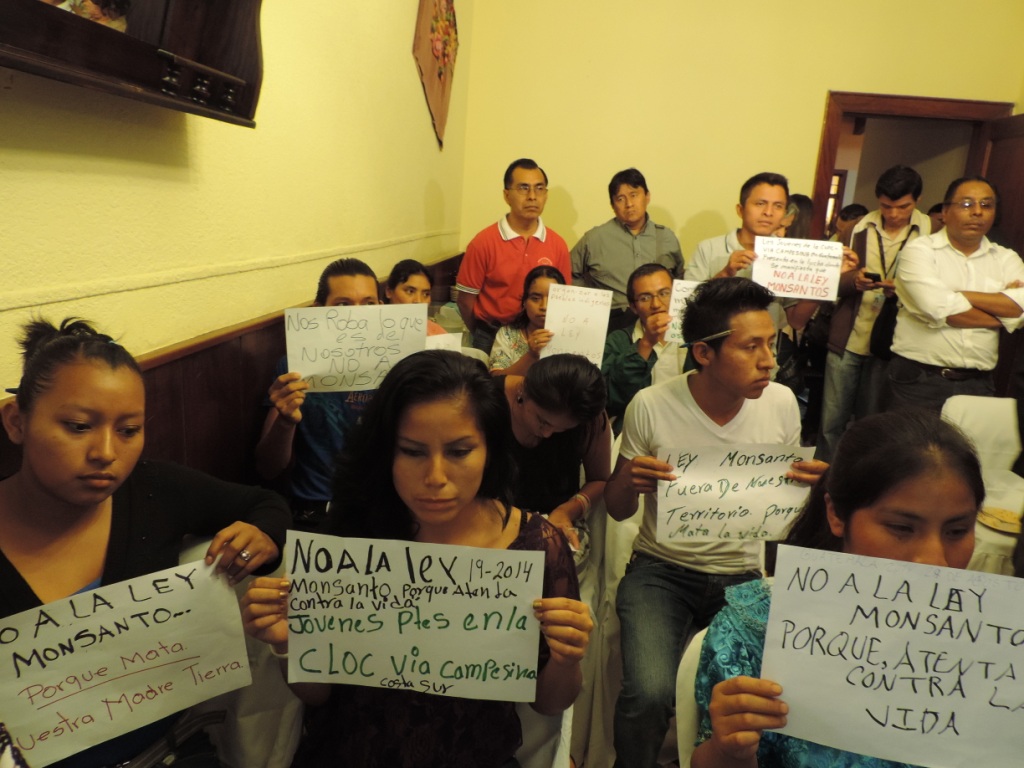 Nos Roba lo que
es de
Nosotros
NO A
MONSA
NO A
LEY
NO A LA LEY
MONSANTOS
LEY Monsanto
Fuera De Nuest
Territorio. Porque
Mata la vida.
O A LA LEY
MONSANTO...
Porque Mata
uestra Madre Tierra
NO A LA LEY 19-2014
Monsanto, Porque Atenta
contra la vida
Jóvenes Ptes en la
CLOC Via Campesina
costa sur
NO A LA LEY
MONSANTO
PORQUE, ATENTA
CONTRA LA
VIDA